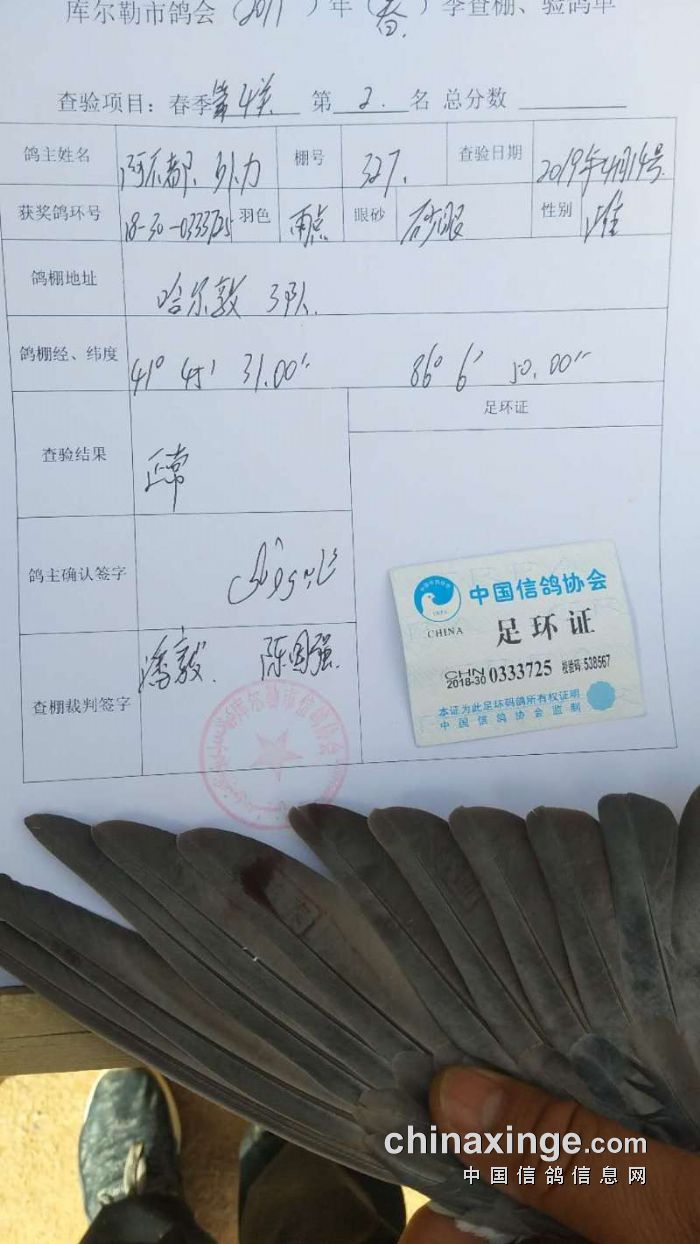 库尔勒市鸽会（2019）年（春）季查棚、验鸽单
查验项目：春季第4关 第 2. 名 总分数
鸽主姓名 阿不都 外力 棚号 327. 查验日期 2019年4月14号
获奖鸽环号 18-30-0333725 羽色 雨点 眼砂 砂眼 性别 雄
鸽棚地址 哈尔敦 3队.
鸽棚经、纬度 41° 45' 31.00'' 86° 6' 50.00''
足环证
查验结果 正常
鸽主确认签字
查棚裁判签字 潘毅 陈国强
中国信鸽协会
CHINA 足环证
CHN 2018-30 0333725 校验码:538567
本证为此足环码鸽所有权证明
中国信鸽协会监制
库尔勒市信鸽协会
chinaxinge.com
中国信鸽信息网